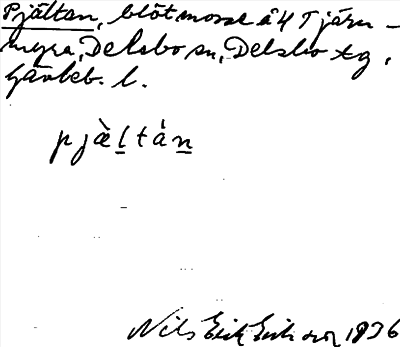 Pjältan, blöt mosse å 4 Tjärn-
myra, Delsbo sn, Delsbo tg,
Gävleb. l.
pjæ̀ltán
Nils Erik Eriksson 1936